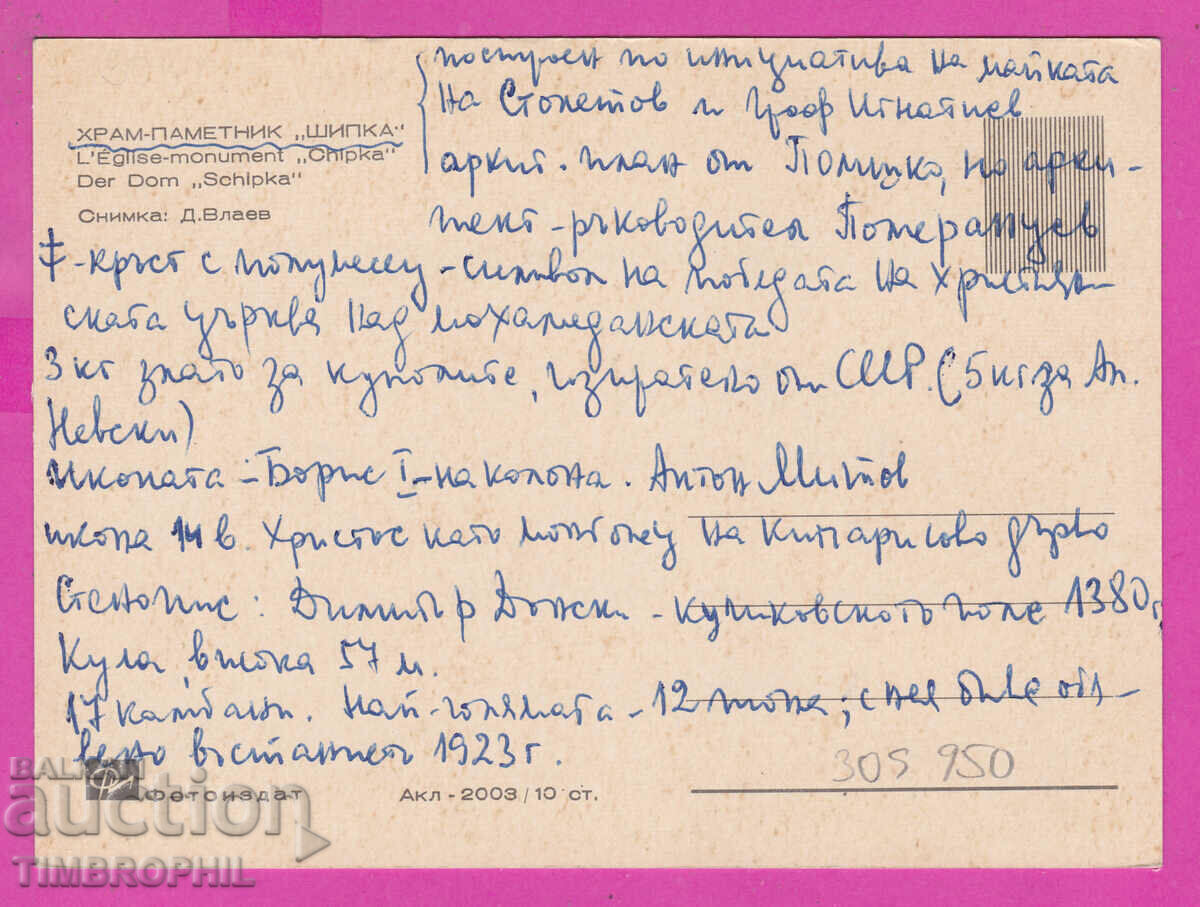 построен по инициатива на майката
на Столетов и граф Игнатиев
архит. план от Помишко, но архи-
тект-ръководител Померанцев
ХРАМ-ПАМЕТНИК „ШИПКА"
L'Église-monument „Chipka"
Der Dom „Schipka"
Снимка: Д.Влаев
-кръст с полумесец - символ на победата на християн-
ската църква над мохамеданската
3 кг злато за куполите, изпратено от СССР. (5 кг за Ал.
Невски)
иконата - Борис I - на колона. Антон Митов
икона 14 в. Христос като младенец на кипарисово дърво
Стенопис: Димитър Донски - Куликовското поле 1380 г.
Кула, висока 57 м.
17 камбани. Най-голямата - 12 тона; с нея било обя-
вено въстанието 1923 г.
305 950
Фотоиздат
Акл - 2003/10 ст.
BALKAN
auction
TIMBROPHIL